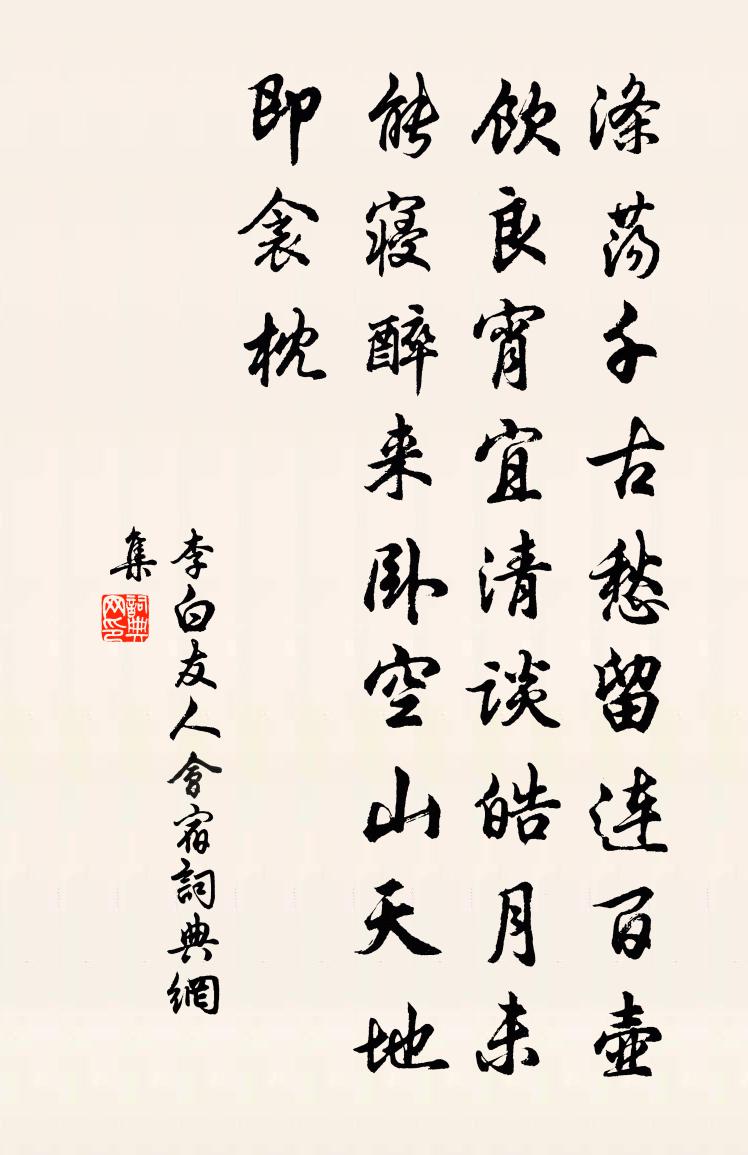 涤荡千古愁留连百壶
饮良宵宜清谈皓月未
能寝醉来卧空山天地
即衾枕
李白友人會宿詞典網
集
詞典
网印